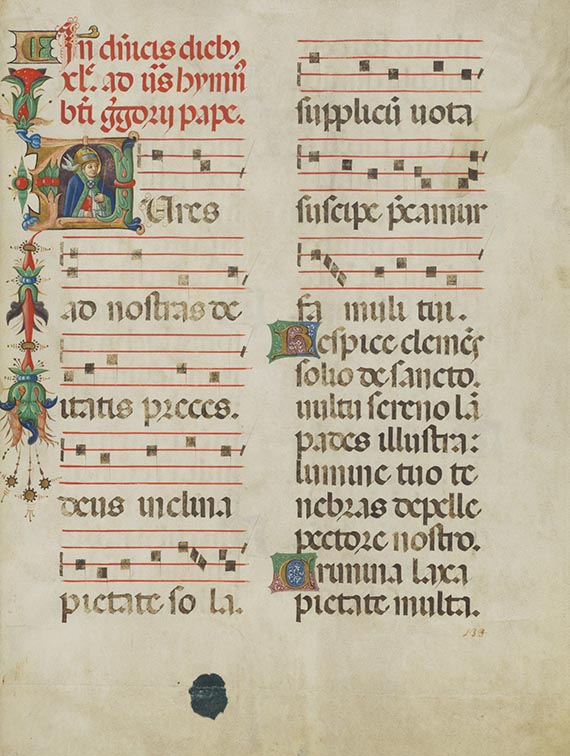 In dn̄icis dieb₉
xl͛. ad ūs hymnꝰ
bt̄i gg̃orij pape.
Aures
ad nostras de
itatis preces.
deus inclina
pietate so la.
supplicū uota
suscipe p̄camur
fa muli tui.
Respice clemēs
solio de sancto.
uultu sereno lā
pades illustra:
lumine tuo te
nebras depelle
pectore nostro.
Crimina laxa
pietate multa.
133